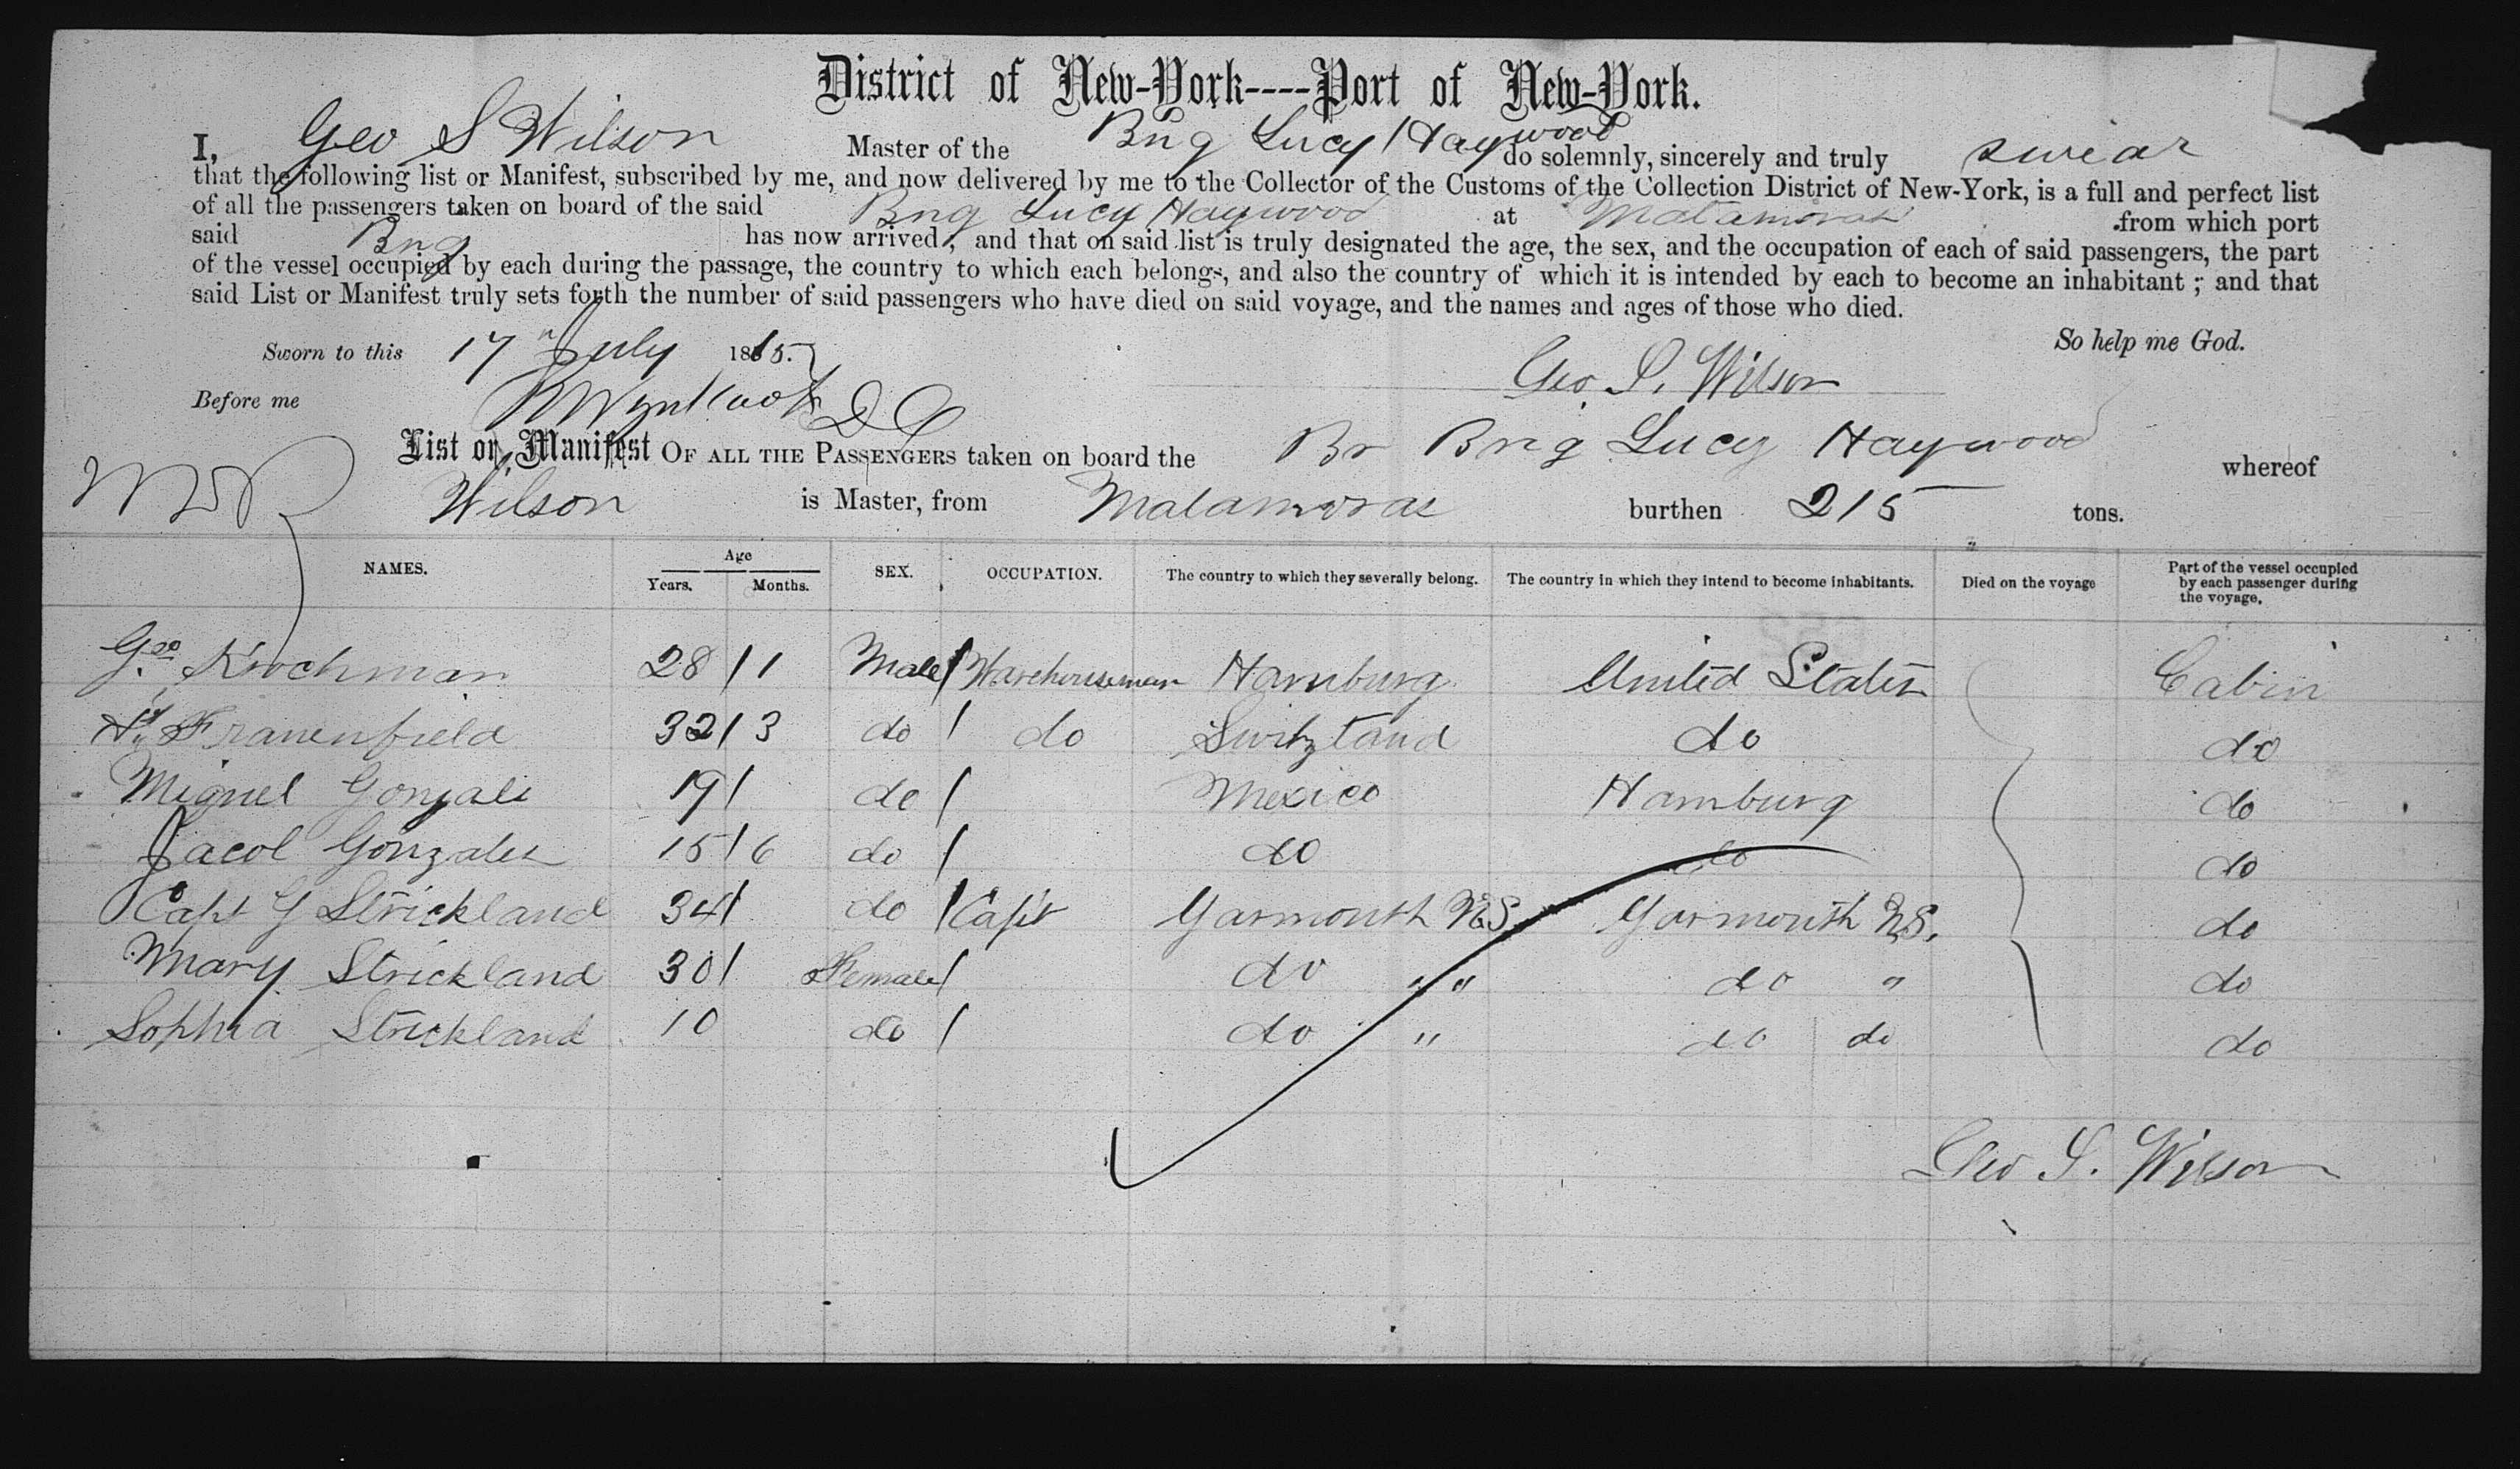 District of New-York----Port of New-York.
I, Geo S Wilson Master of the Brig Lucy Haywood do solemnly, sincerely and truly swear
that the following list or Manifest, subscribed by me, and now delivered by me to the Collector of the Customs of the Collection District of New-York, is a full and perfect list
of all the passengers taken on board of the said Brig Lucy Haywood at Matamoras from which port
said Brig has now arrived; and that on said list is truly designated the age, the sex, and the occupation of each of said passengers, the part
of the vessel occupied by each during the passage, the country to which each belongs, and also the country of which it is intended by each to become an inhabitant; and that
said List or Manifest truly sets forth the number of said passengers who have died on said voyage, and the names and ages of those who died.
So help me God.
Sworn to this 17 July 1865.
Geo. S. Wilson
Before me DC
List or Manifest OF ALL THE PASSENGERS taken on board the Br Brig Lucy Haywood whereof
Wilson is Master, from Matamoras burthen 215 tons.
NAMES. Age Years. Months. SEX. OCCUPATION. The country to which they severally belong. The country in which they intend to become inhabitants. Died on the voyage Part of the vessel occupied by each passenger during the voyage.
Geo Kirchman 28 / 1 Male / Warehouseman Hamburg United States Cabin
Hy Frauenfield 32 / 3 do / do Switzland do do
Miguel Gonzales 19 / do / Mexico Hamburg do
Jacol Gonzales 15 / 6 do / do do do
Capt G Strickland 34 / do / Capt Yarmouth N.S. Yarmouth N.S. do
Mary Strickland 30 / Female / do " " do " do
Sophia Strickland 10 do / do " do do do
Geo S. Wilson